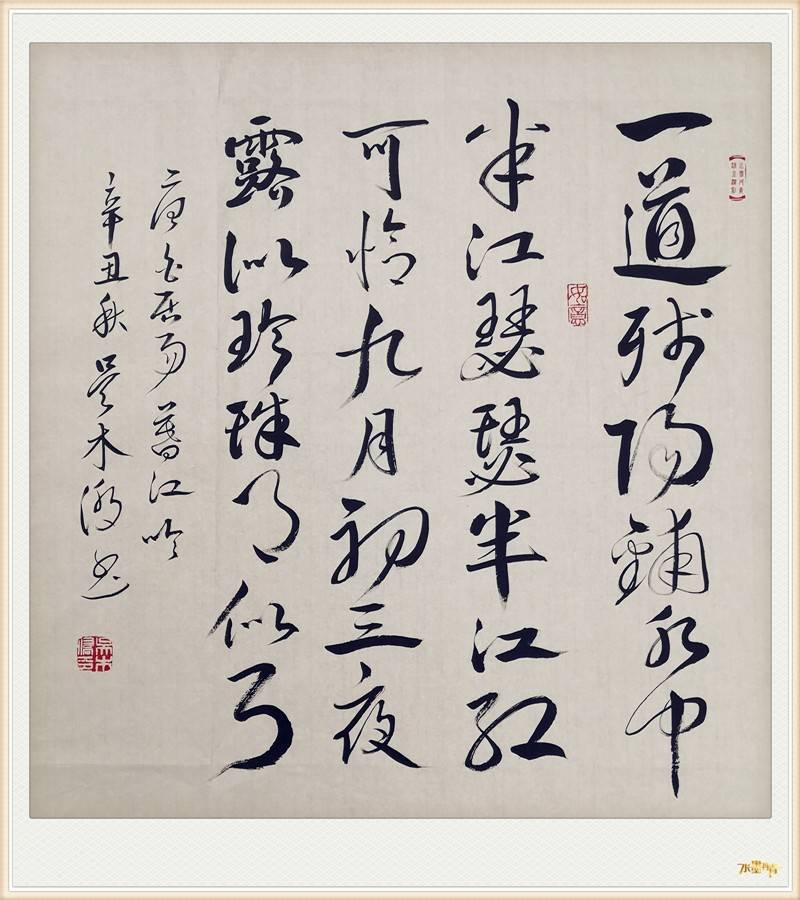 一道残阳铺水中
半江瑟瑟半江红
可怜九月初三夜
露似珍珠月似弓
唐白居易暮江吟
辛丑秋吴木澄书
水墨丹青